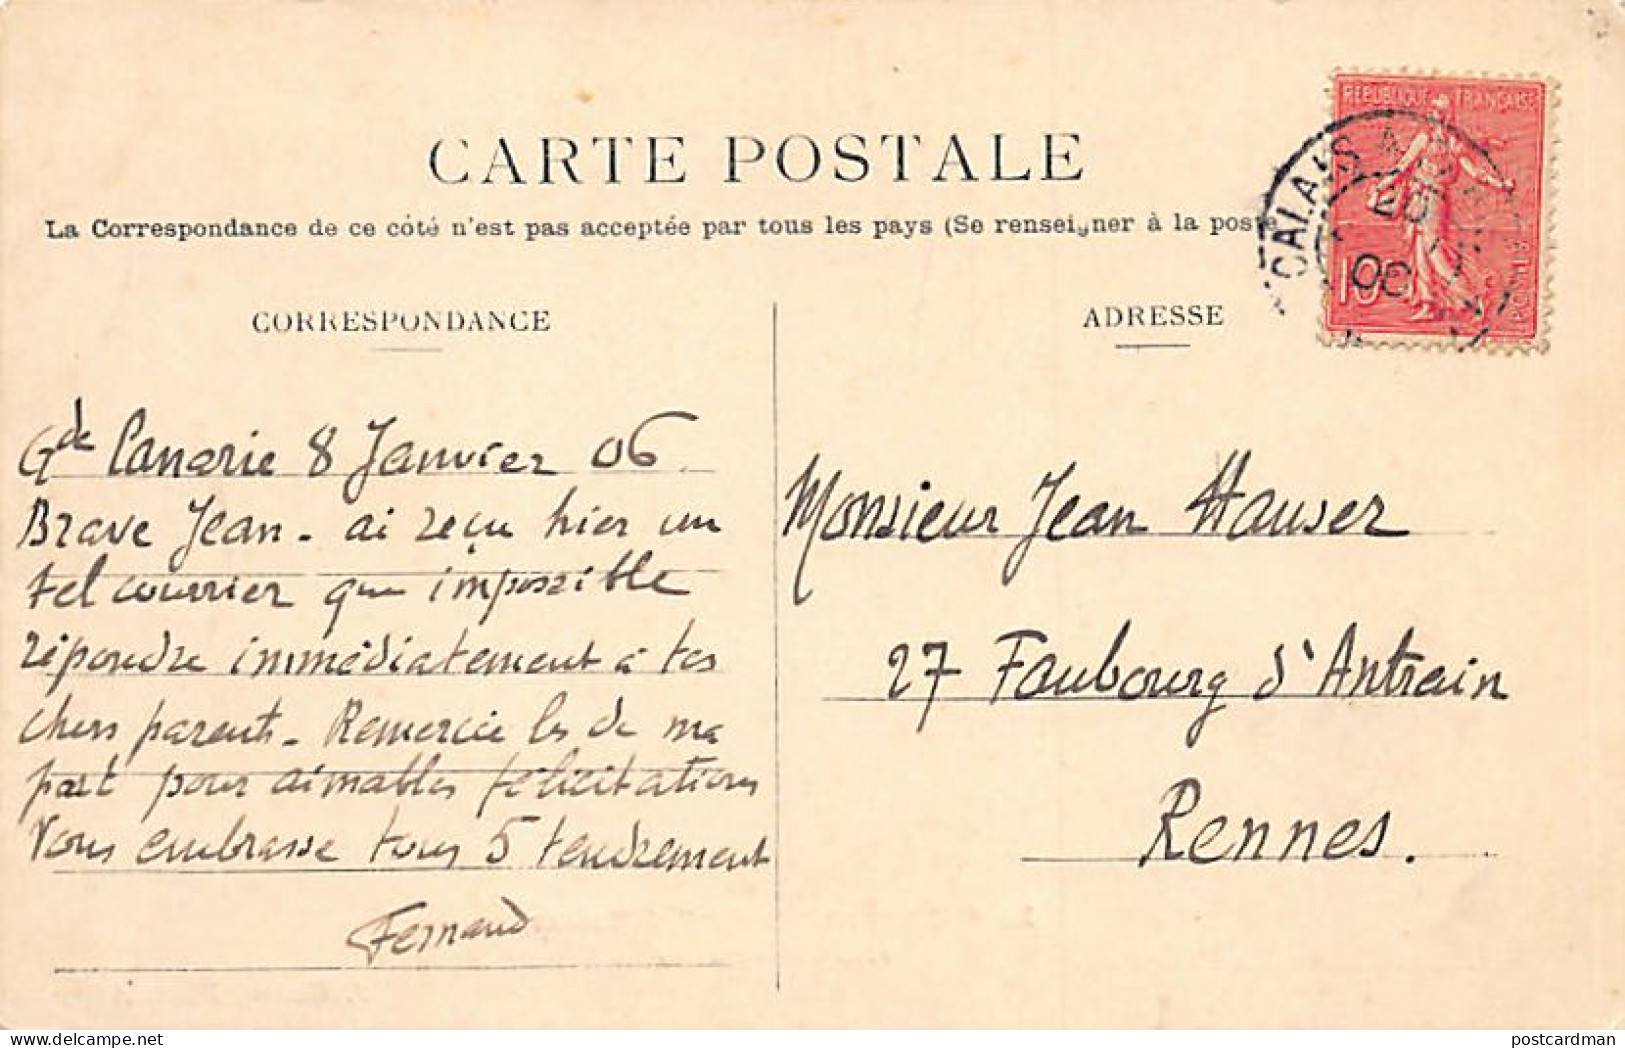 CARTE POSTALE
La Correspondance de ce côté n'est pas acceptée par tous les pays (Se renseigner à la poste
CORRESPONDANCE
Gde Canarie 8 Janvier 06.
Brave Jean - ai reçu hier un
tel courrier que impossible
répondre immédiatement à tes
chers parents - Remercie les de ma
part pour aimables félicitations
Vous embrasse tous 5 tendrement
Fernand
ADRESSE
Monsieur Jean Hauser
27 Faubourg d'Antrain
Rennes.
REPUBLIQUE FRANÇAISE
10
POSTES
CALAIS A
20
06
postcardman